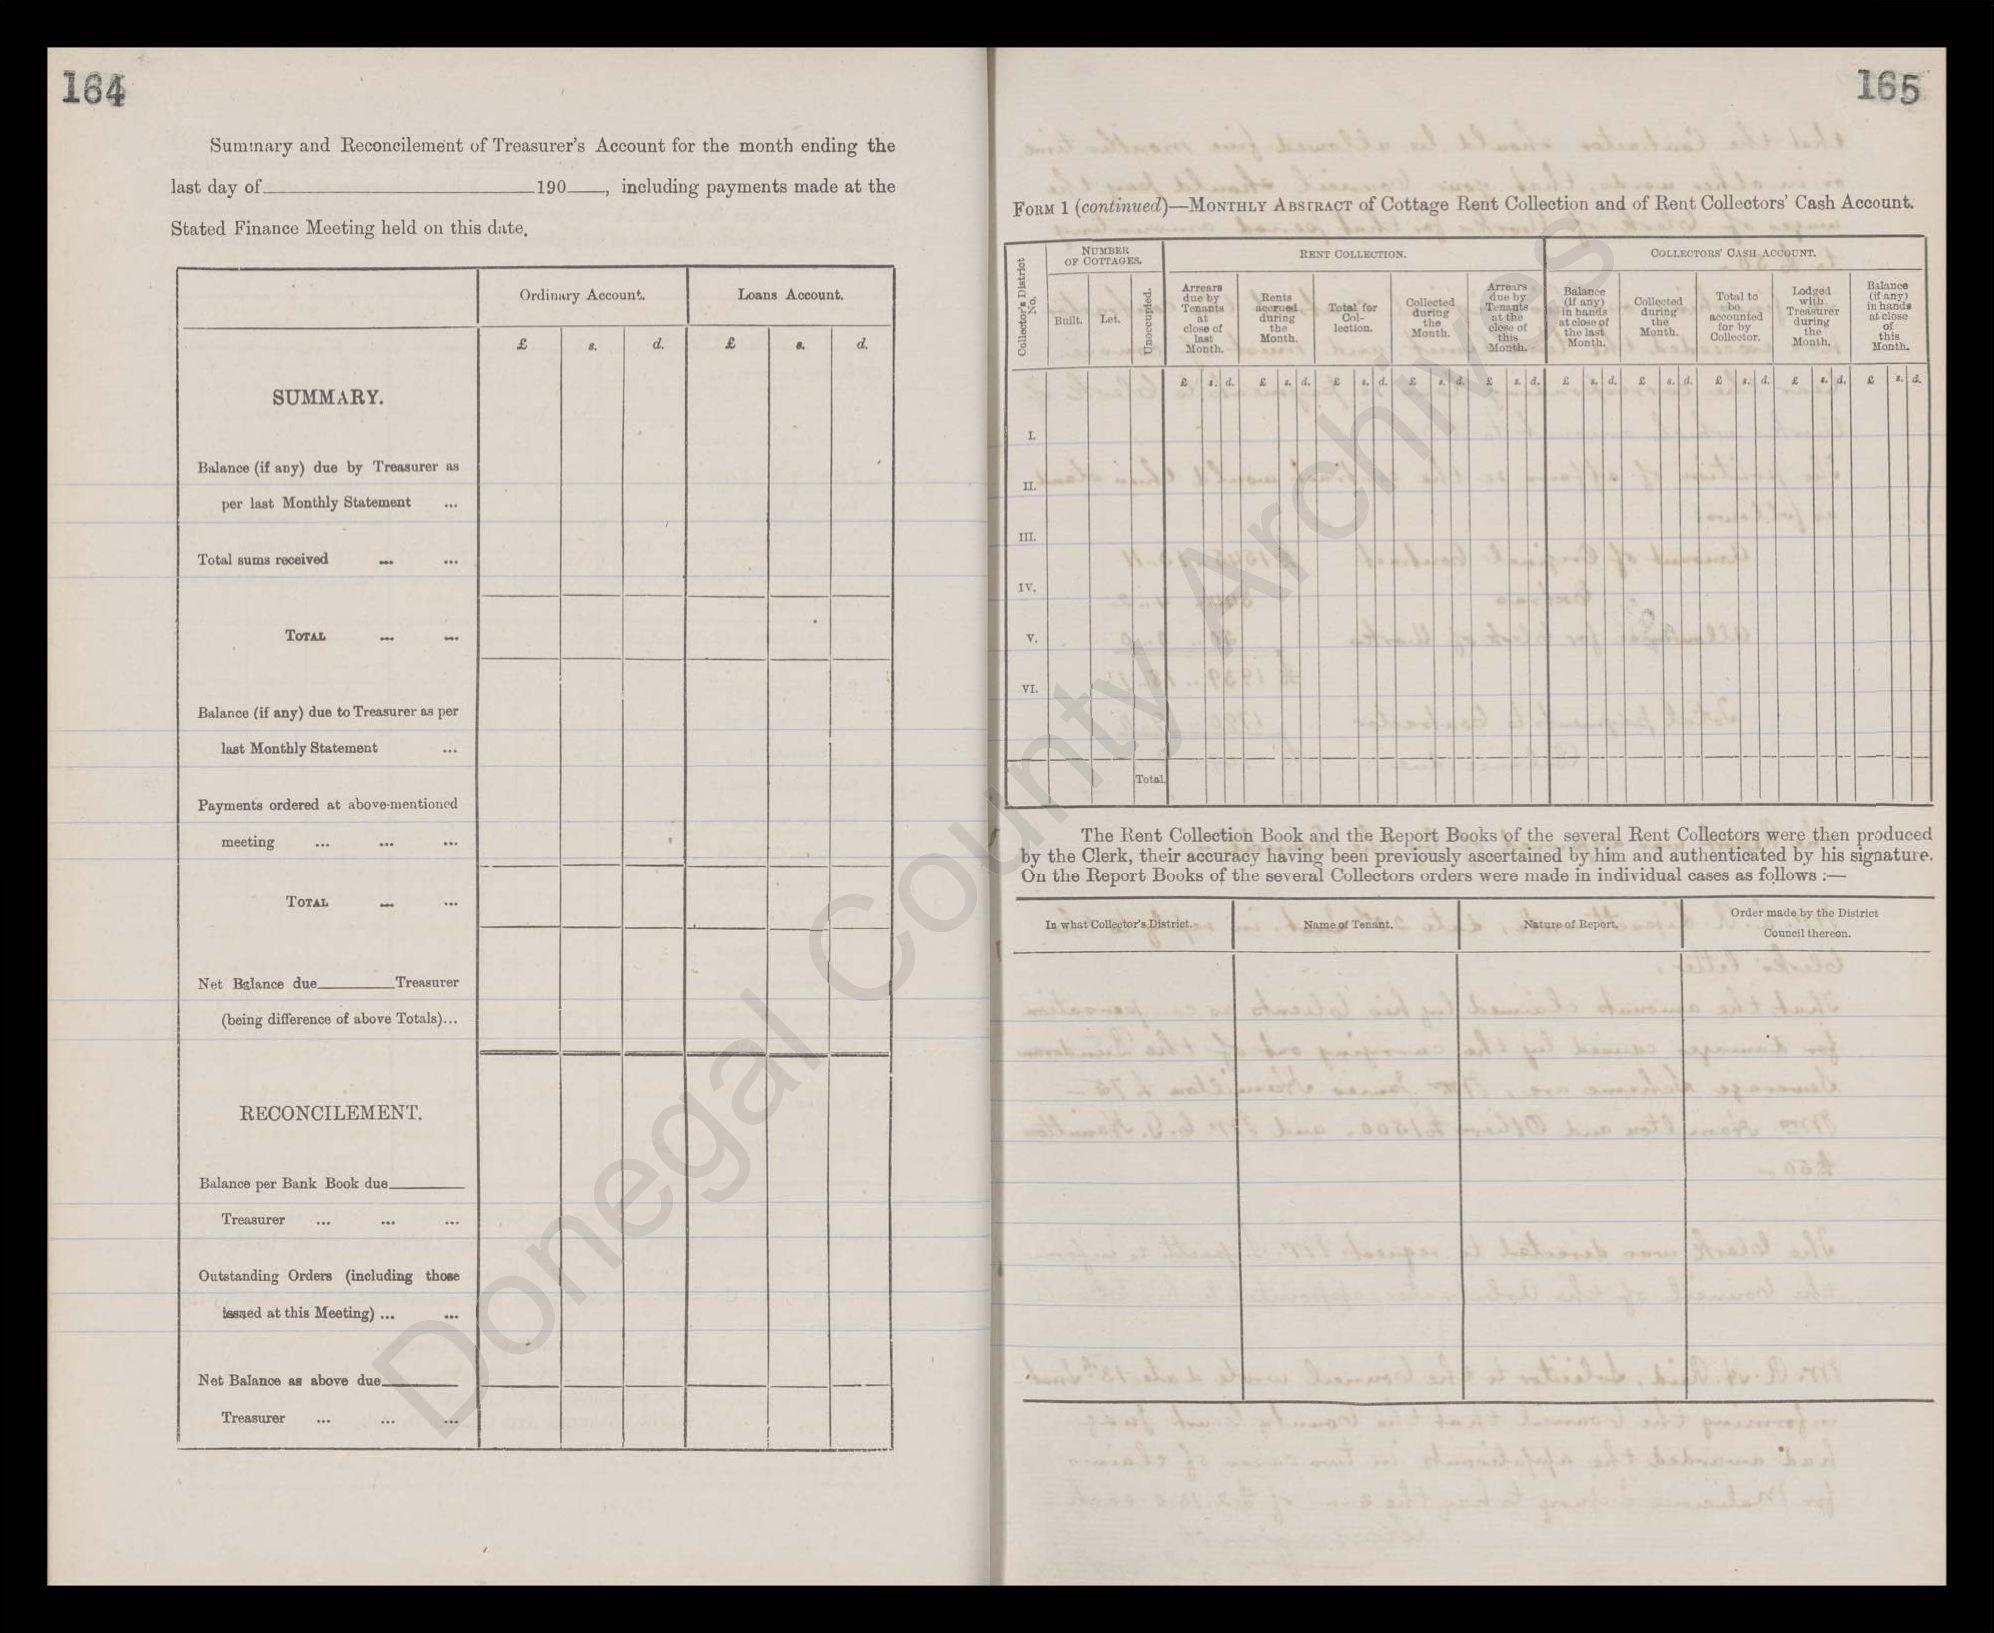 164
Summary and Reconcilement of Treasurer's Account for the month ending the
last day of 190 , including payments made at the
Stated Finance Meeting held on this date.
Ordinary Account. Loans Account.
£ s. d. £ s. d.
SUMMARY.
Balance (if any) due by Treasurer as
per last Monthly Statement ...
Total sums received ... ...
TOTAL ... ...
Balance (if any) due to Treasurer as per
last Monthly Statement ...
Payments ordered at above-mentioned
meeting ... ... ...
TOTAL ... ...
Net Balance due Treasurer
(being difference of above Totals)...
RECONCILEMENT.
Balance per Bank Book due
Treasurer ... ... ...
Outstanding Orders (including those
issued at this Meeting) ... ...
Net Balance as above due
Treasurer ... ... ...
165
FORM 1 (continued)—MONTHLY ABSTRACT of Cottage Rent Collection and of Rent Collectors' Cash Account.
Collector's District No.
NUMBER
OF COTTAGES.
Built. Let. Unoccupied.
RENT COLLECTION.
Arrears
due by
Tenants
at
close of
last
Month.
Rents
accrued
during
the
Month.
Total for
Col-
lection.
Collected
during
the
Month.
Arrears
due by
Tenants
at the
close of
this
Month.
COLLECTORS' CASH ACCOUNT.
Balance
(if any)
in hands
at close of
the last
Month.
Collected
during
the
Month.
Total to
be
accounted
for by
Collector.
Lodged
with
Treasurer
during
the
Month.
Balance
(if any)
in hands
at close
of
this
Month.
£ s. d. £ s. d. £ s. d. £ s. d. £ s. d. £ s. d. £ s. d. £ s. d. £ s. d. £ s. d.
I.
II.
III.
IV.
V.
VI.
Total.
The Rent Collection Book and the Report Books of the several Rent Collectors were then produced
by the Clerk, their accuracy having been previously ascertained by him and authenticated by his signature.
On the Report Books of the several Collectors orders were made in individual cases as follows :—
In what Collector's District. Name of Tenant. Nature of Report. Order made by the District
Council thereon.
Donegal County Archives